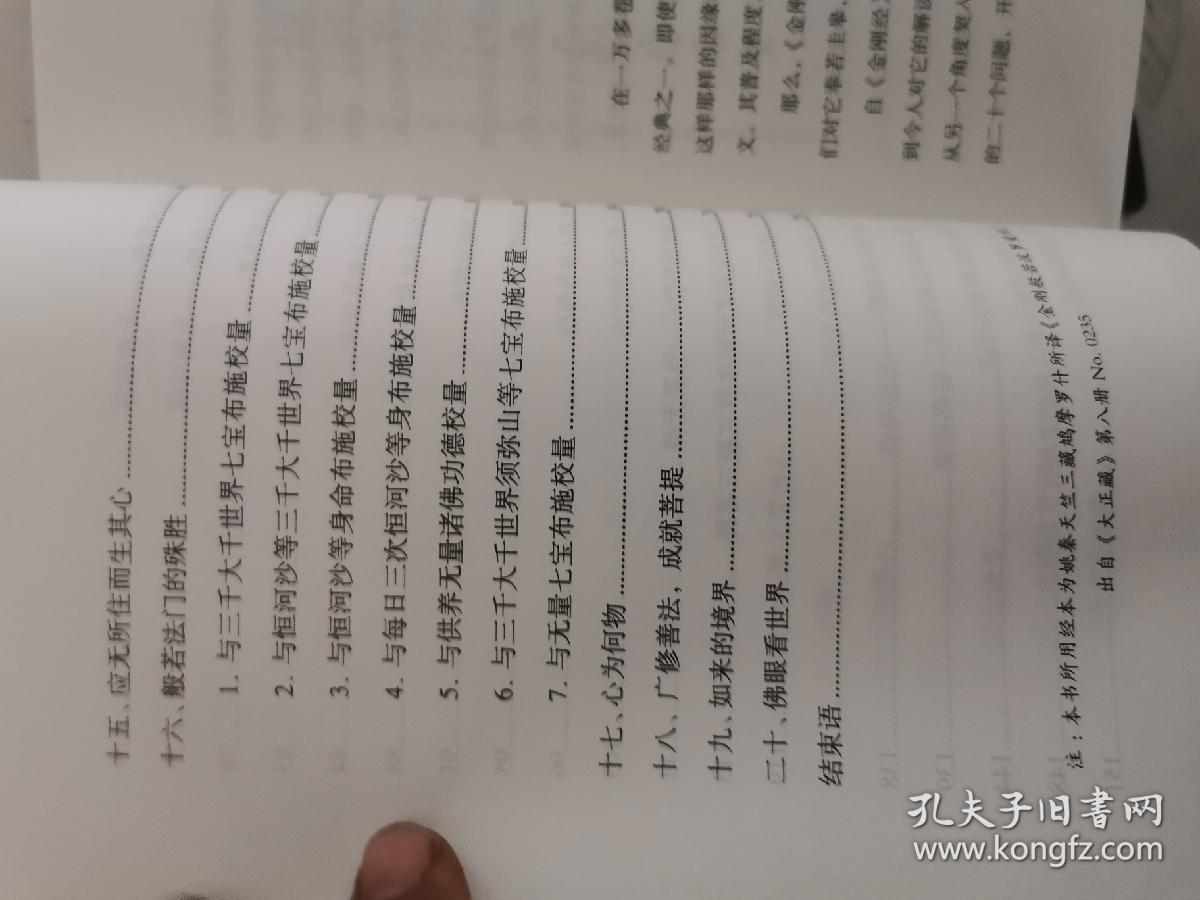 十五、应无所住而生其心
十六、般若法门的殊胜
1. 与三千大千世界七宝布施校量
2. 与恒河沙等三千大千世界七宝布施校量
3. 与恒河沙等身命布施校量
4. 与每日三次恒河沙等身布施校量
5. 与供养无量诸佛功德校量
6. 与三千大千世界须弥山等七宝布施校量
7. 与无量七宝布施校量
十七、心为何物
十八、广修善法，成就菩提
十九、如来的境界
二十、佛眼看世界
结束语
注：本书所用经本为姚秦天竺三藏鸠摩罗什所译《金刚般若波罗
出自《大正藏》第八册 No. 0235
在一万多卷
经典之一。即使
这样那样的因缘
文。其普及程度
那么，《金刚
们对它奉若圭臬，
自《金刚经》
到今人对它的解读
从另一个角度契入
的二十个问题，开
孔夫子旧书网
www.kongfz.com